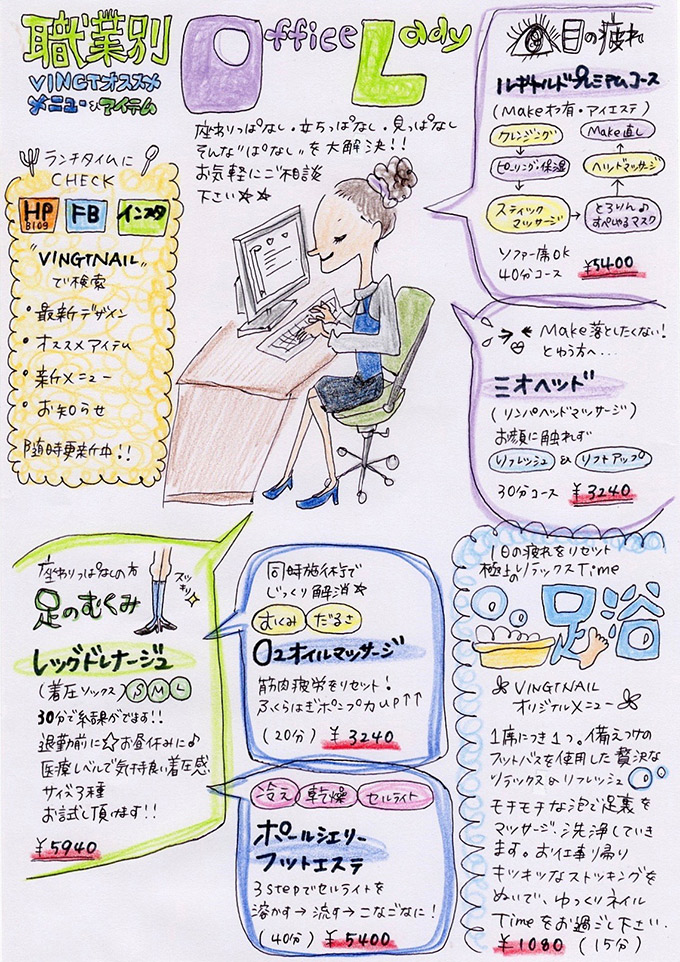 職業別
VINGTオススメ
メニュー&アイテム
Office Lady
座わりっぱなし・立ちっぱなし・見っぱなし
そんな"ぱなし"を大解決!!
お気軽にご相談
下さい☆☆
ランチタイムに
CHECK
HP
B109
FB
インスタ
"VINGTNAIL"
で検索
・最新デザイン
・オススメアイテム
・新メニュー
・お知らせ
随時更新中!!
目の疲れ
プレミアムコース
(Make有・アイエステ)
クレンジング
ピーリング・保湿
スティック
マッサージ
とろりん♪
すべやるマスク
ヘッドマッサージ
Make直し
ソファー席OK
40分コース ¥5400
Make落としたくない!
とゆう方へ…
三オヘッド
(リンパヘッドマッサージ)
お顔に触れず
リフレッシュ & リフトアップ
30分コース ¥3240
座わりっぱなしの方
スッキリ
足のむくみ
レッグドレナージュ
(着圧ソックス) S M L
30分で結果がでます!!
退勤前に☆お昼休みに♪
医療レベルで気持良い着圧感
サイズ3種
お試し頂けます!!
¥5940
同時施術で
じっくり解消☆
むくみ だるさ
O2オイルマッサージ
筋肉疲労をリセット!
ふくらはぎポンプ力UP↑↑
(20分) ¥3240
冷え 乾燥 セルライト
ポールシェリー
フットエステ
3stepでセルライトを
溶かす→流す→こなごなに!
(40分) ¥5400
1日の疲れをリセット
極上のリラックスTime
足浴
VINGTNAIL
オリジナルメニュー
1席につき1つ。備えつけの
フットバスを使用した贅沢な
リラックス&リフレッシュ
モチモチな泡で足裏を
マッサージ、洗浄していき
ます。お仕事帰り
キツキツなストッキングを
ぬいで、ゆっくりネイル
Timeをお過ごし下さい.
¥1080 (15分)